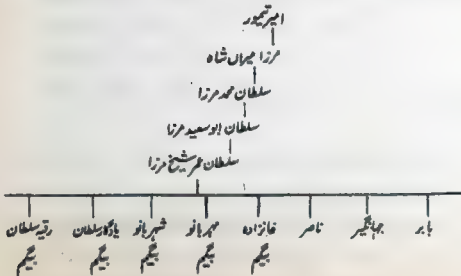 امیر تیمور
مرزا میراں شاہ
سلطان محمد مرزا
سلطان ابو سعید مرزا
سلطان عمر شیخ مرزا
بابر جہانگیر ناصر خانزادہ بیگم مہر بانو بیگم شہر بانو بیگم یادگار سلطان بیگم رقیہ سلطان بیگم